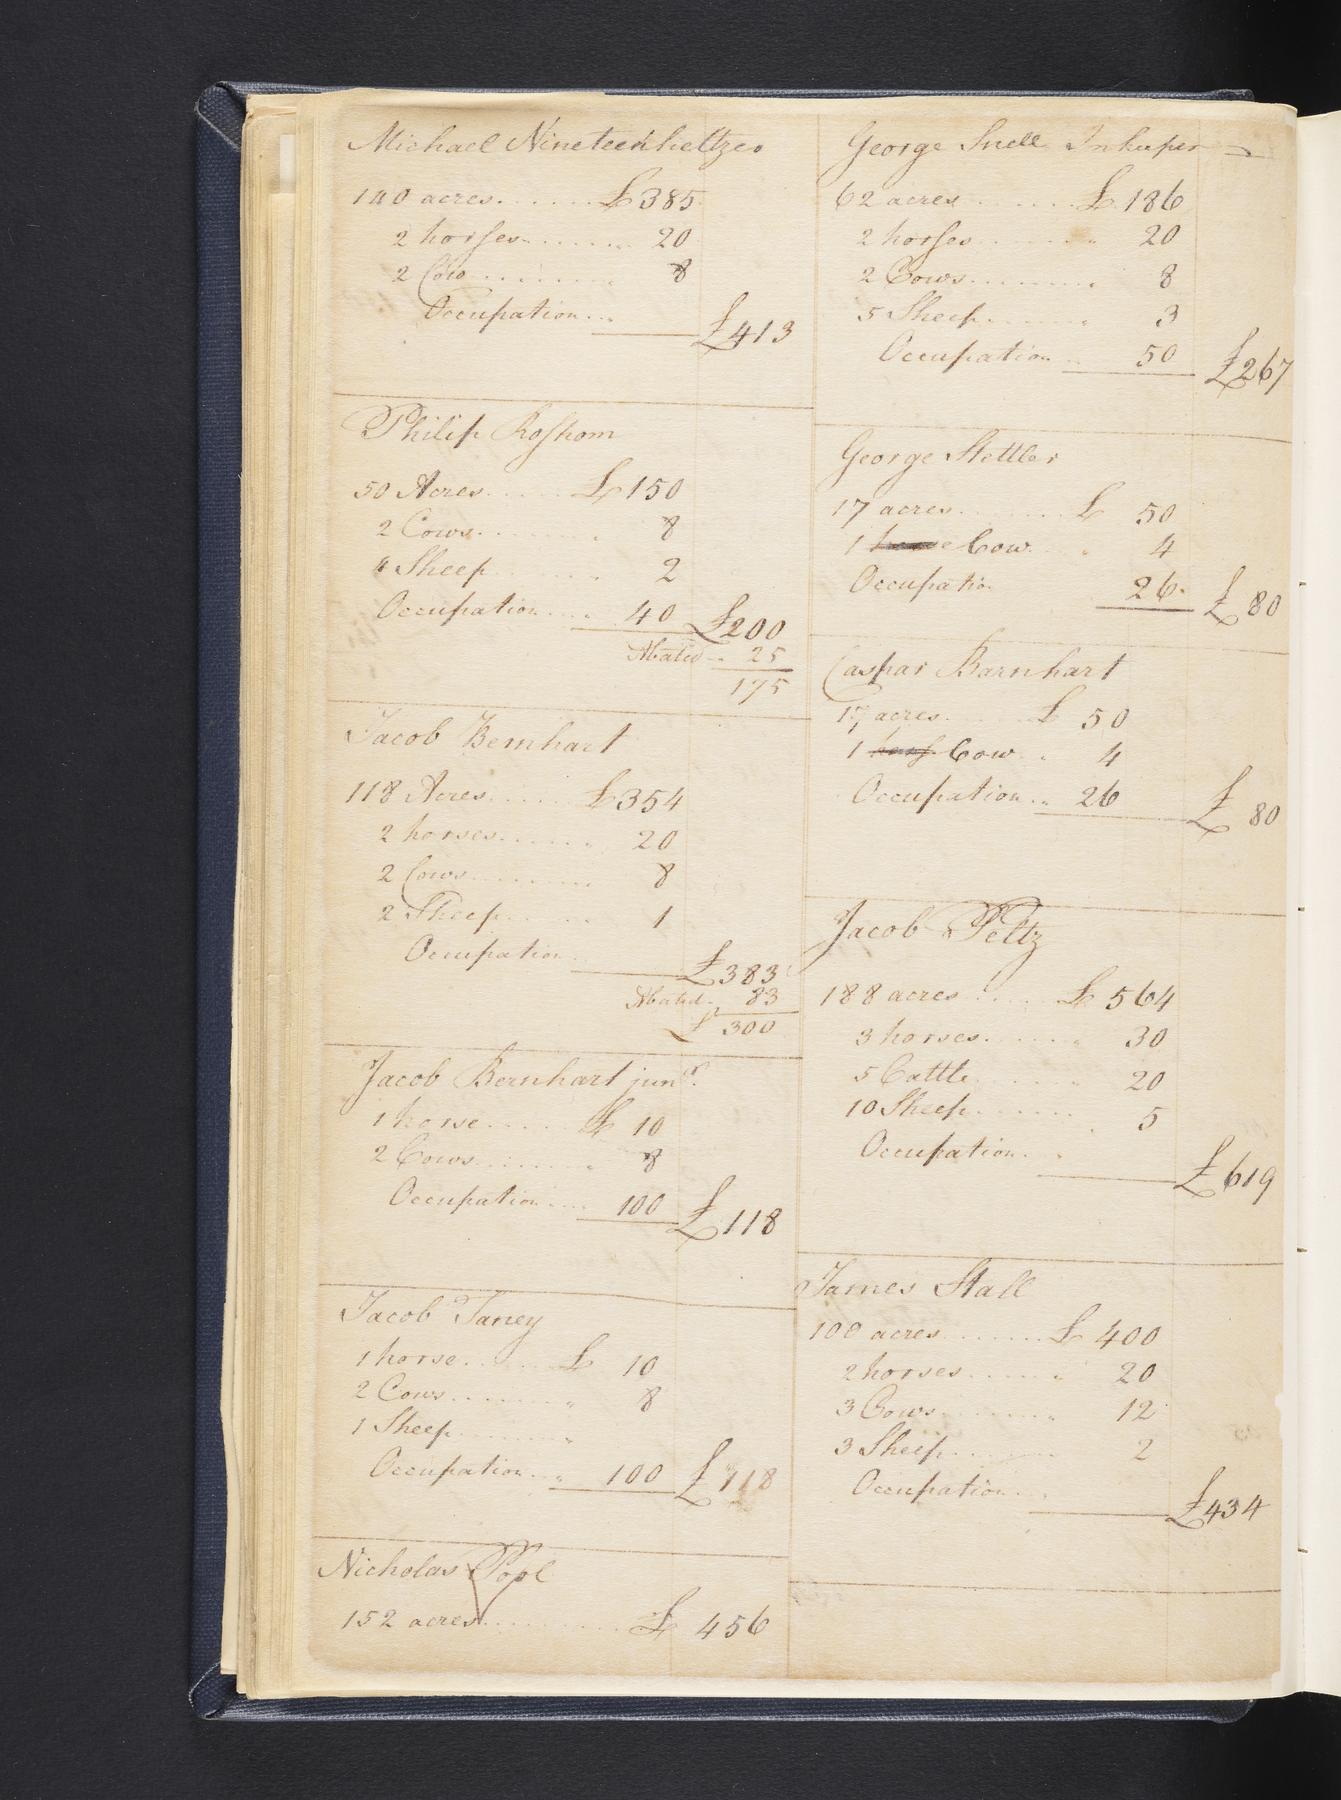 Michael Nineteenheltzer
140 acres........£385
2 horses........ 20
2 Cow........ 8
Occupation...
£413
Philip Roshom
50 Acres......£150
2 Cows........ 8
4 Sheep........ 2
Occupation.... 40 £200
Abated - 25
175
Jacob Bernhart
118 Acres......£354
2 horses....... 20
2 Cows........ 8
2 Sheep....... 1
Occupation..
£383
Abated. 83
£300
Jacob Bernhart junr.
1 horse......£10
2 Cows........ 8
Occupation.... 100 £118
Jacob Taney
1 horse......£10
2 Cows........ 8
1 Sheep........
Occupation... 100 £118
Nicholas Pool
152 acres..........£456
George Snell Inkeeper
62 acres........£186
2 horses........ 20
2 Cows......... 8
5 Sheep....... 3
Occupation.. 50 £267
George Stettler
17 acres........£50
1 Cow.... 4
Occupatio 26. £80
Caspar Barnhart
17 acres.......£50
1 Cow.. 4
Occupation... 26 £80
Jacob Peltz
188 acres......£564
3 horses....... 30
5 Cattle....... 20
10 Sheep....... 5
Occupation..
£619
James Stall
100 acres.......£400
2 horses....... 20
3 Cows........ 12
3 Sheep....... 2
Occupation...
£434